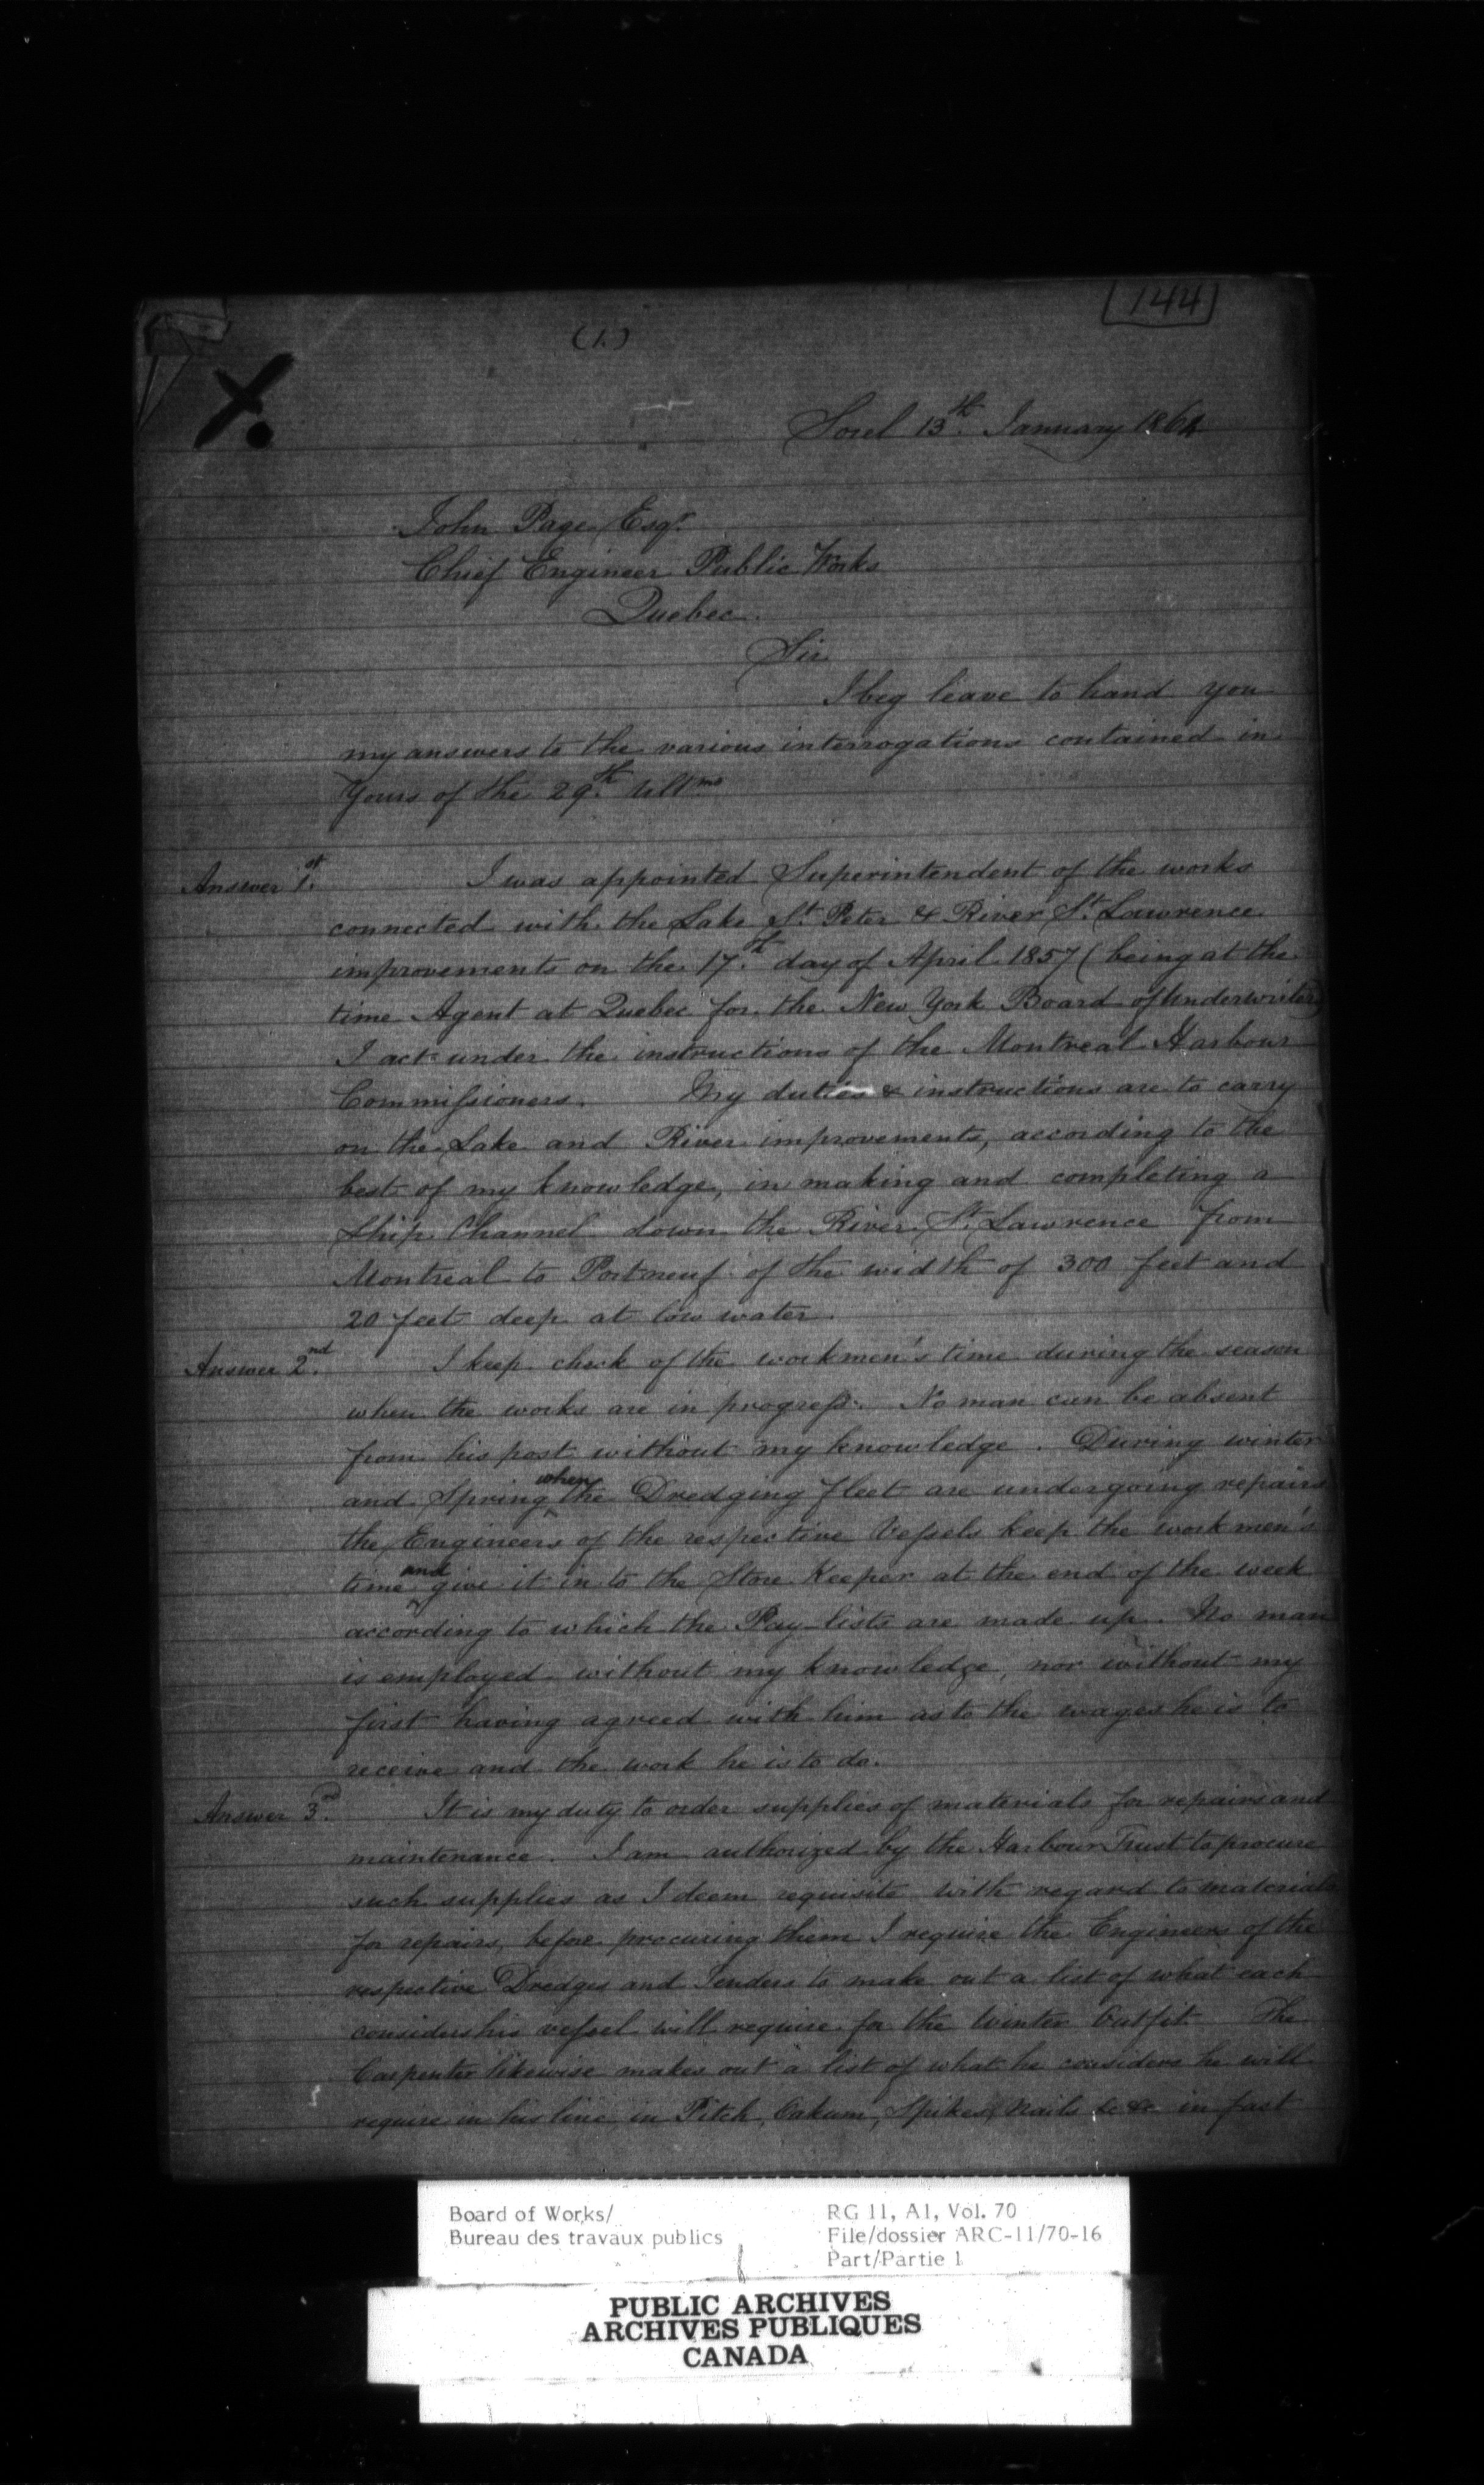 144
(1.)
X.
Sorel 13th. January 1864
John Page Esqr.
Chief Engineer Public Works
Quebec.
Sir
I beg leave to hand you
my answers to the various interrogations contained in
Yours of the 29th. Ultmo
Answer 1st. I was appointed Superintendent of the works
connected with the Lake St. Peter & River St. Lawrence
improvements on the 17th. day of April 1857 (being at the
time Agent at Quebec for the New York Board of Underwriters)
I act under the instructions of the Montreal Harbour
Commissioners. My duties & instructions are to carry
on the Lake and River improvements, according to the
best of my knowledge, in making and completing a
Ship Channel down the River St. Lawrence from
Montreal to Portneuf of the width of 300 feet and
20 feet deep at low water.
Answer 2nd. I keep check of the workmen's time during the season
when the works are in progress. No man can be absent
from his post without my knowledge. During winter
and Spring when the Dredging fleet are undergoing repairs
the Engineers of the respective Vessels keep the workmen's
time and give it in to the Store Keeper at the end of the week
according to which the Pay-lists are made up. No man
is employed without my knowledge, nor without my
first having agreed with him as to the wages he is to
receive and the work he is to do.
Answer 3rd. It is my duty to order supplies of materials for repairs and
maintenance. I am authorized by the Harbour Trust to procure
such supplies as I deem requisite with regard to materials
for repairs, before procuring them I require the Engineers of the
respective Dredges and Tenders to make out a list of what each
considers his vessel will require for the Winter Outfit. The
Carpenter likewise makes out a list of what he considers he will
require in his line, in Pitch, Oakum, Spikes, Nails &c &c in fact
Board of Works/
Bureau des travaux publics
RG 11, A1, Vol. 70
File/dossier ARC-11/70-16
Part/Partie 1
PUBLIC ARCHIVES
ARCHIVES PUBLIQUES
CANADA